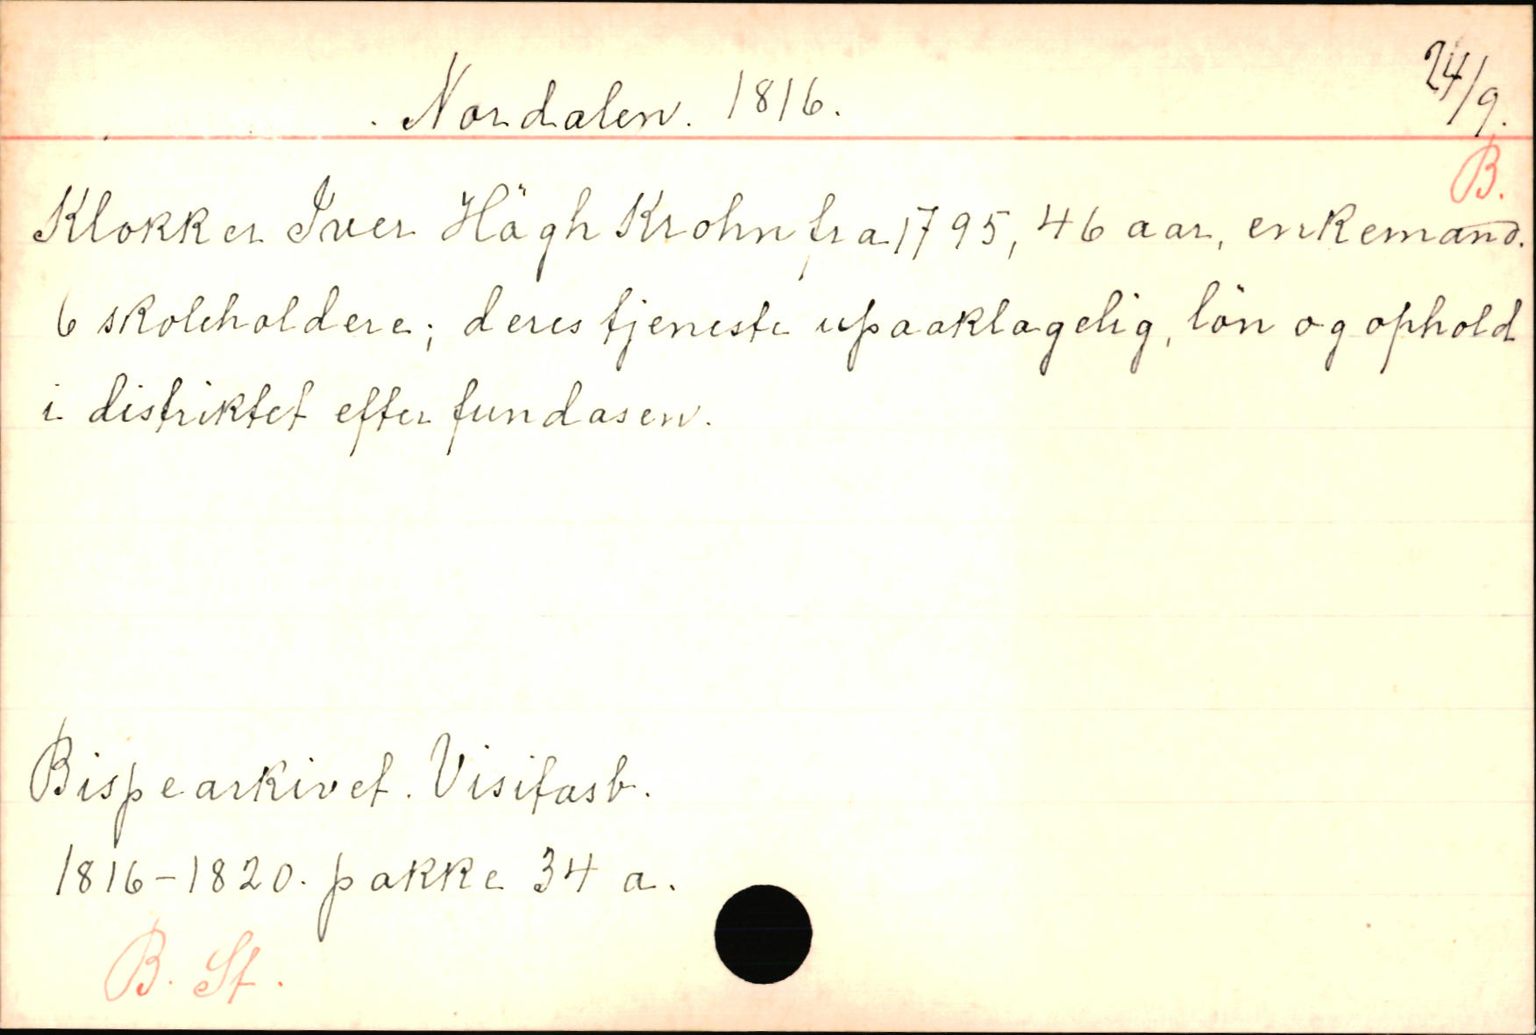 Nordalen. 1816.
24/9.
B.
Klokker Iver Hägh Krohn fra 1795, 46 aar, enkemand.
6 skoleholdere; deres tjeneste upaaklagelig, lön og ophold
i distriktet efter fundasen.
Bispearkivet. Visitasb.
1816-1820. pakke 34 a.
B. St.